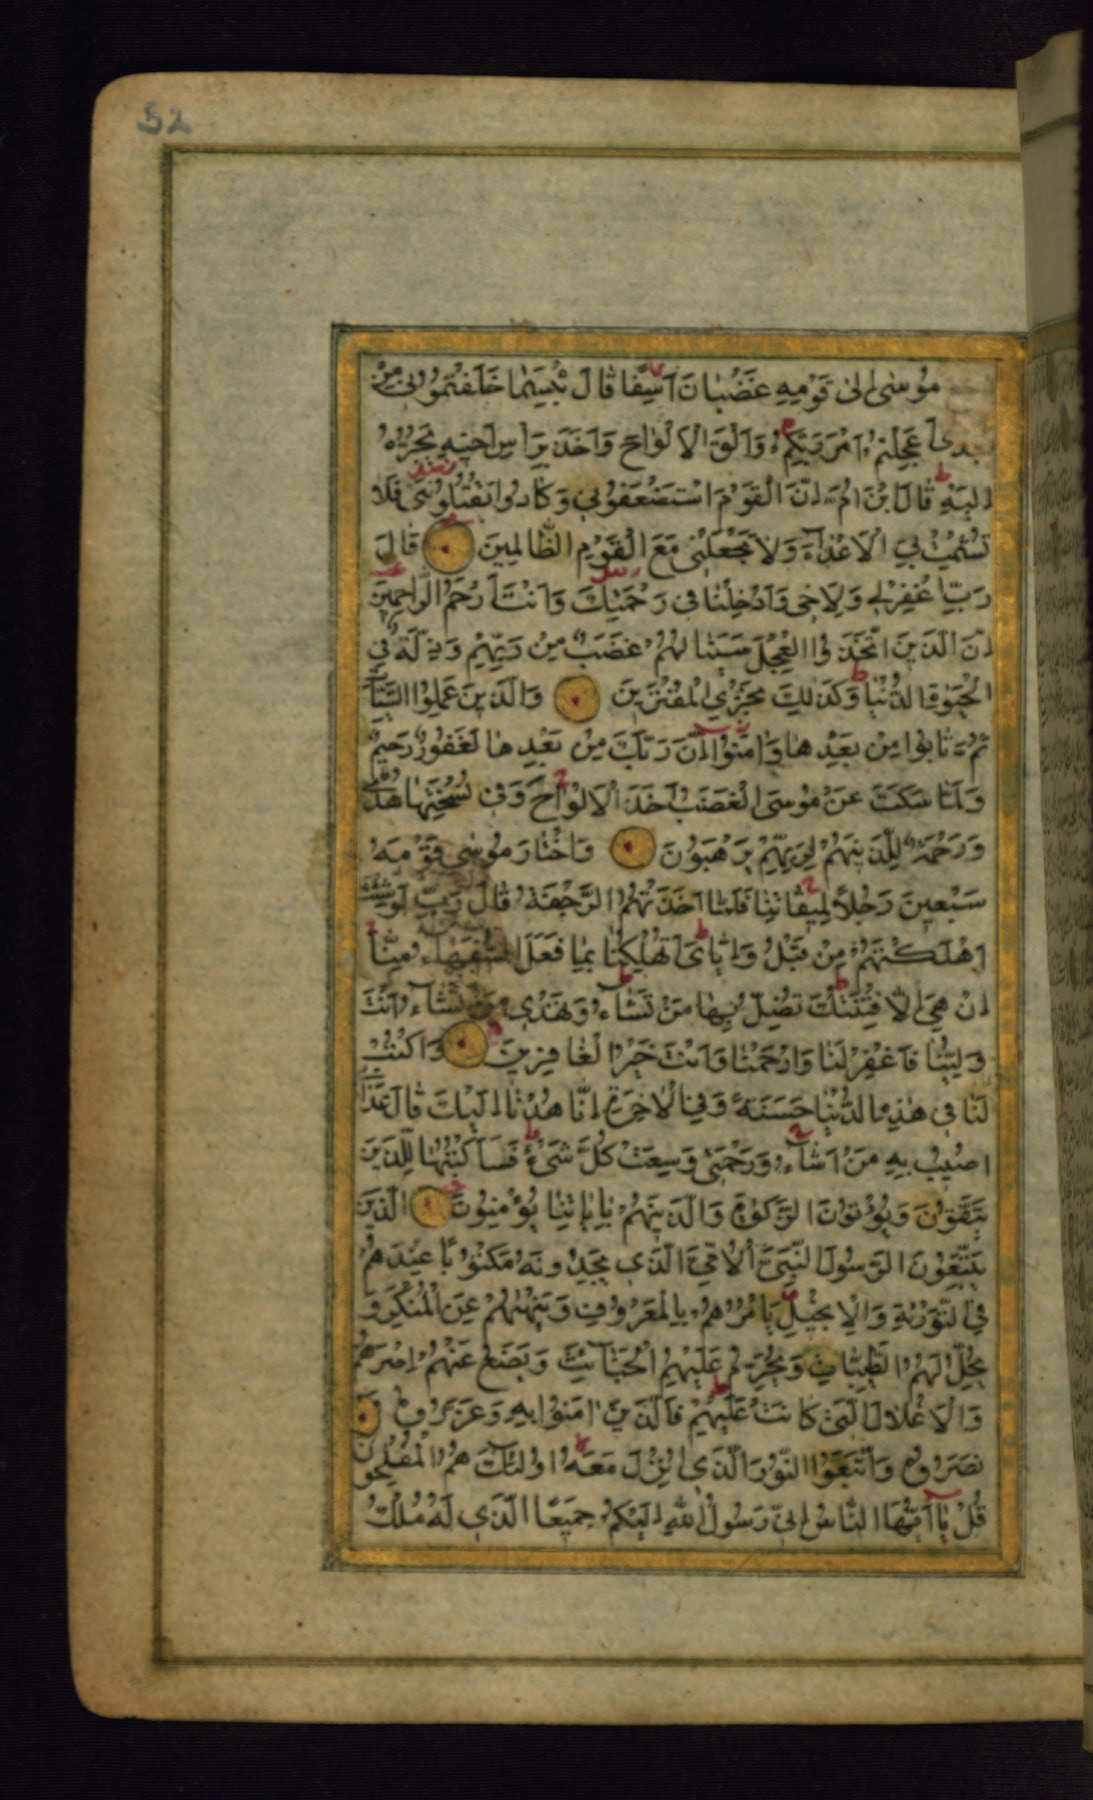 52
مُوسٰى اِلٰى قَوْمِهِ غَضْبَانَ اَسِفًا قَالَ بِئْسَمَا خَلَفْتُمُونِى مِنْ
بَعْدِى اَعَجِلْتُمْ اَمْرَ رَبِّكُمْ وَاَلْقَى الْاَلْوَاحَ وَاَخَذَ بِرَاْسِ اَخِيهِ يَجُرُّهُ
اِلَيْهِ قَالَ ابْنَ اُمَّ اِنَّ الْقَوْمَ اسْتَضْعَفُونِى وَكَادُوا يَقْتُلُونَنِى فَلَا
تُشْمِتْ بِىَ الْاَعْدَآءَ وَلَا تَجْعَلْنِى مَعَ الْقَوْمِ الظَّالِمِينَ قَالَ
رَبِّ اغْفِرْلِى وَلِاَخِى وَاَدْخِلْنَا فِى رَحْمَتِكَ وَاَنْتَ اَرْحَمُ الرَّاحِمِينَ
اِنَّ الَّذِينَ اتَّخَذُوا الْعِجْلَ سَيَنَالُهُمْ غَضَبٌ مِنْ رَبِّهِمْ وَذِلَّةٌ فِى
الْحَيٰوةِ الدُّنْيَا وَكَذٰلِكَ نَجْزِى الْمُفْتَرِينَ وَالَّذِينَ عَمِلُوا السَّيِّاٰتِ
ثُمَّ تَابُوا مِنْ بَعْدِهَا وَاٰمَنُوا اِنَّ رَبَّكَ مِنْ بَعْدِهَا لَغَفُورٌ رَحِيمٌ
وَلَمَّا سَكَتَ عَنْ مُوسَى الْغَضَبُ اَخَذَ الْاَلْوَاحَ وَفِى نُسْخَتِهَا هُدًى
وَرَحْمَةٌ لِلَّذِينَ هُمْ لِرَبِّهِمْ يَرْهَبُونَ وَاخْتَارَ مُوسٰى قَوْمَهُ
سَبْعِينَ رَجُلًا لِمِيقَاتِنَا فَلَمَّا اَخَذَتْهُمُ الرَّجْفَةُ قَالَ رَبِّ لَوْ شِئْتَ
اَهْلَكْتَهُمْ مِنْ قَبْلُ وَاِيَّاىَ اَتُهْلِكُنَا بِمَا فَعَلَ السُّفَهَآءُ مِنَّا
اِنْ هِىَ اِلَّا فِتْنَتُكَ تُضِلُّ بِهَا مَنْ تَشَآءُ وَتَهْدِى مَنْ تَشَآءُ اَنْتَ
وَلِيُّنَا فَاغْفِرْ لَنَا وَارْحَمْنَا وَاَنْتَ خَيْرُ الْغَافِرِينَ وَاكْتُبْ
لَنَا فِى هٰذِهِ الدُّنْيَا حَسَنَةً وَفِى الْاٰخِرَةِ اِنَّا هُدْنَا اِلَيْكَ قَالَ عَذَابِى
اُصِيبُ بِهِ مَنْ اَشَآءُ وَرَحْمَتِى وَسِعَتْ كُلَّ شَىْءٍ فَسَاَكْتُبُهَا لِلَّذِينَ
يَتَّقُونَ وَيُؤْتُونَ الزَّكٰوةَ وَالَّذِينَ هُمْ بِاٰيَاتِنَا يُؤْمِنُونَ الَّذِينَ
يَتَّبِعُونَ الرَّسُولَ النَّبِىَّ الْاُمِّىَّ الَّذِى يَجِدُونَهُ مَكْتُوبًا عِنْدَهُمْ
فِى التَّوْرٰيةِ وَالْاِنْجِيلِ يَاْمُرُهُمْ بِالْمَعْرُوفِ وَيَنْهٰيهُمْ عَنِ الْمُنْكَرِ وَ
يُحِلُّ لَهُمُ الطَّيِّبَاتِ وَيُحَرِّمُ عَلَيْهِمُ الْخَبَآئِثَ وَيَضَعُ عَنْهُمْ اِصْرَهُمْ
وَالْاَغْلَالَ الَّتِى كَانَتْ عَلَيْهِمْ فَالَّذِينَ اٰمَنُوا بِهِ وَعَزَّرُوهُ وَ
نَصَرُوهُ وَاتَّبَعُوا النُّورَ الَّذِى اُنْزِلَ مَعَهُ اُولٰٓئِكَ هُمُ الْمُفْلِحُونَ
قُلْ يَآ اَيُّهَا النَّاسُ اِنِّى رَسُولُ اللهِ اِلَيْكُمْ جَمِيعًا الَّذِى لَهُ مُلْكُ